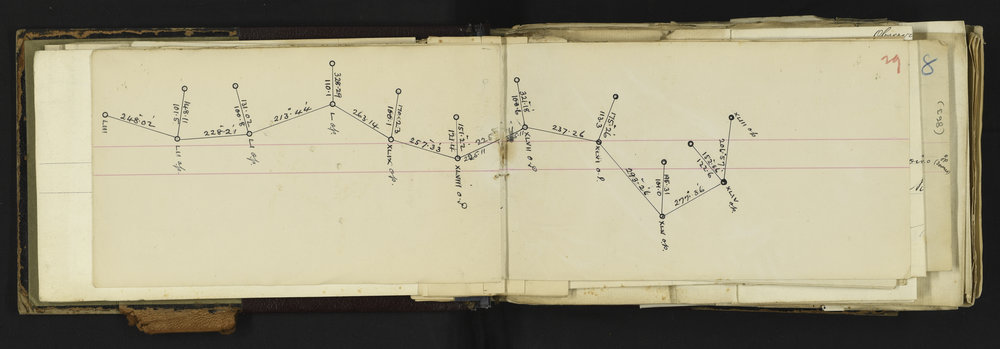 LIII
248·02
148·11
101·5
LII o/p.
228·21
131·02
100·8
LI o/p.
213·44
328·29
110·1
L o/p.
263·14
100·1
XLIX o/p.
257·33
151·22
121·4
XLVIII o.p
245·11
321·18
100·6
XLVII o.p
237·26
175·26
113·3
XLVI o.p.
293·26
195·31
101·0
XLV o/p.
277·36
152·56
122·6
XLIV o/p.
204·57
XLIII o/p
29
8